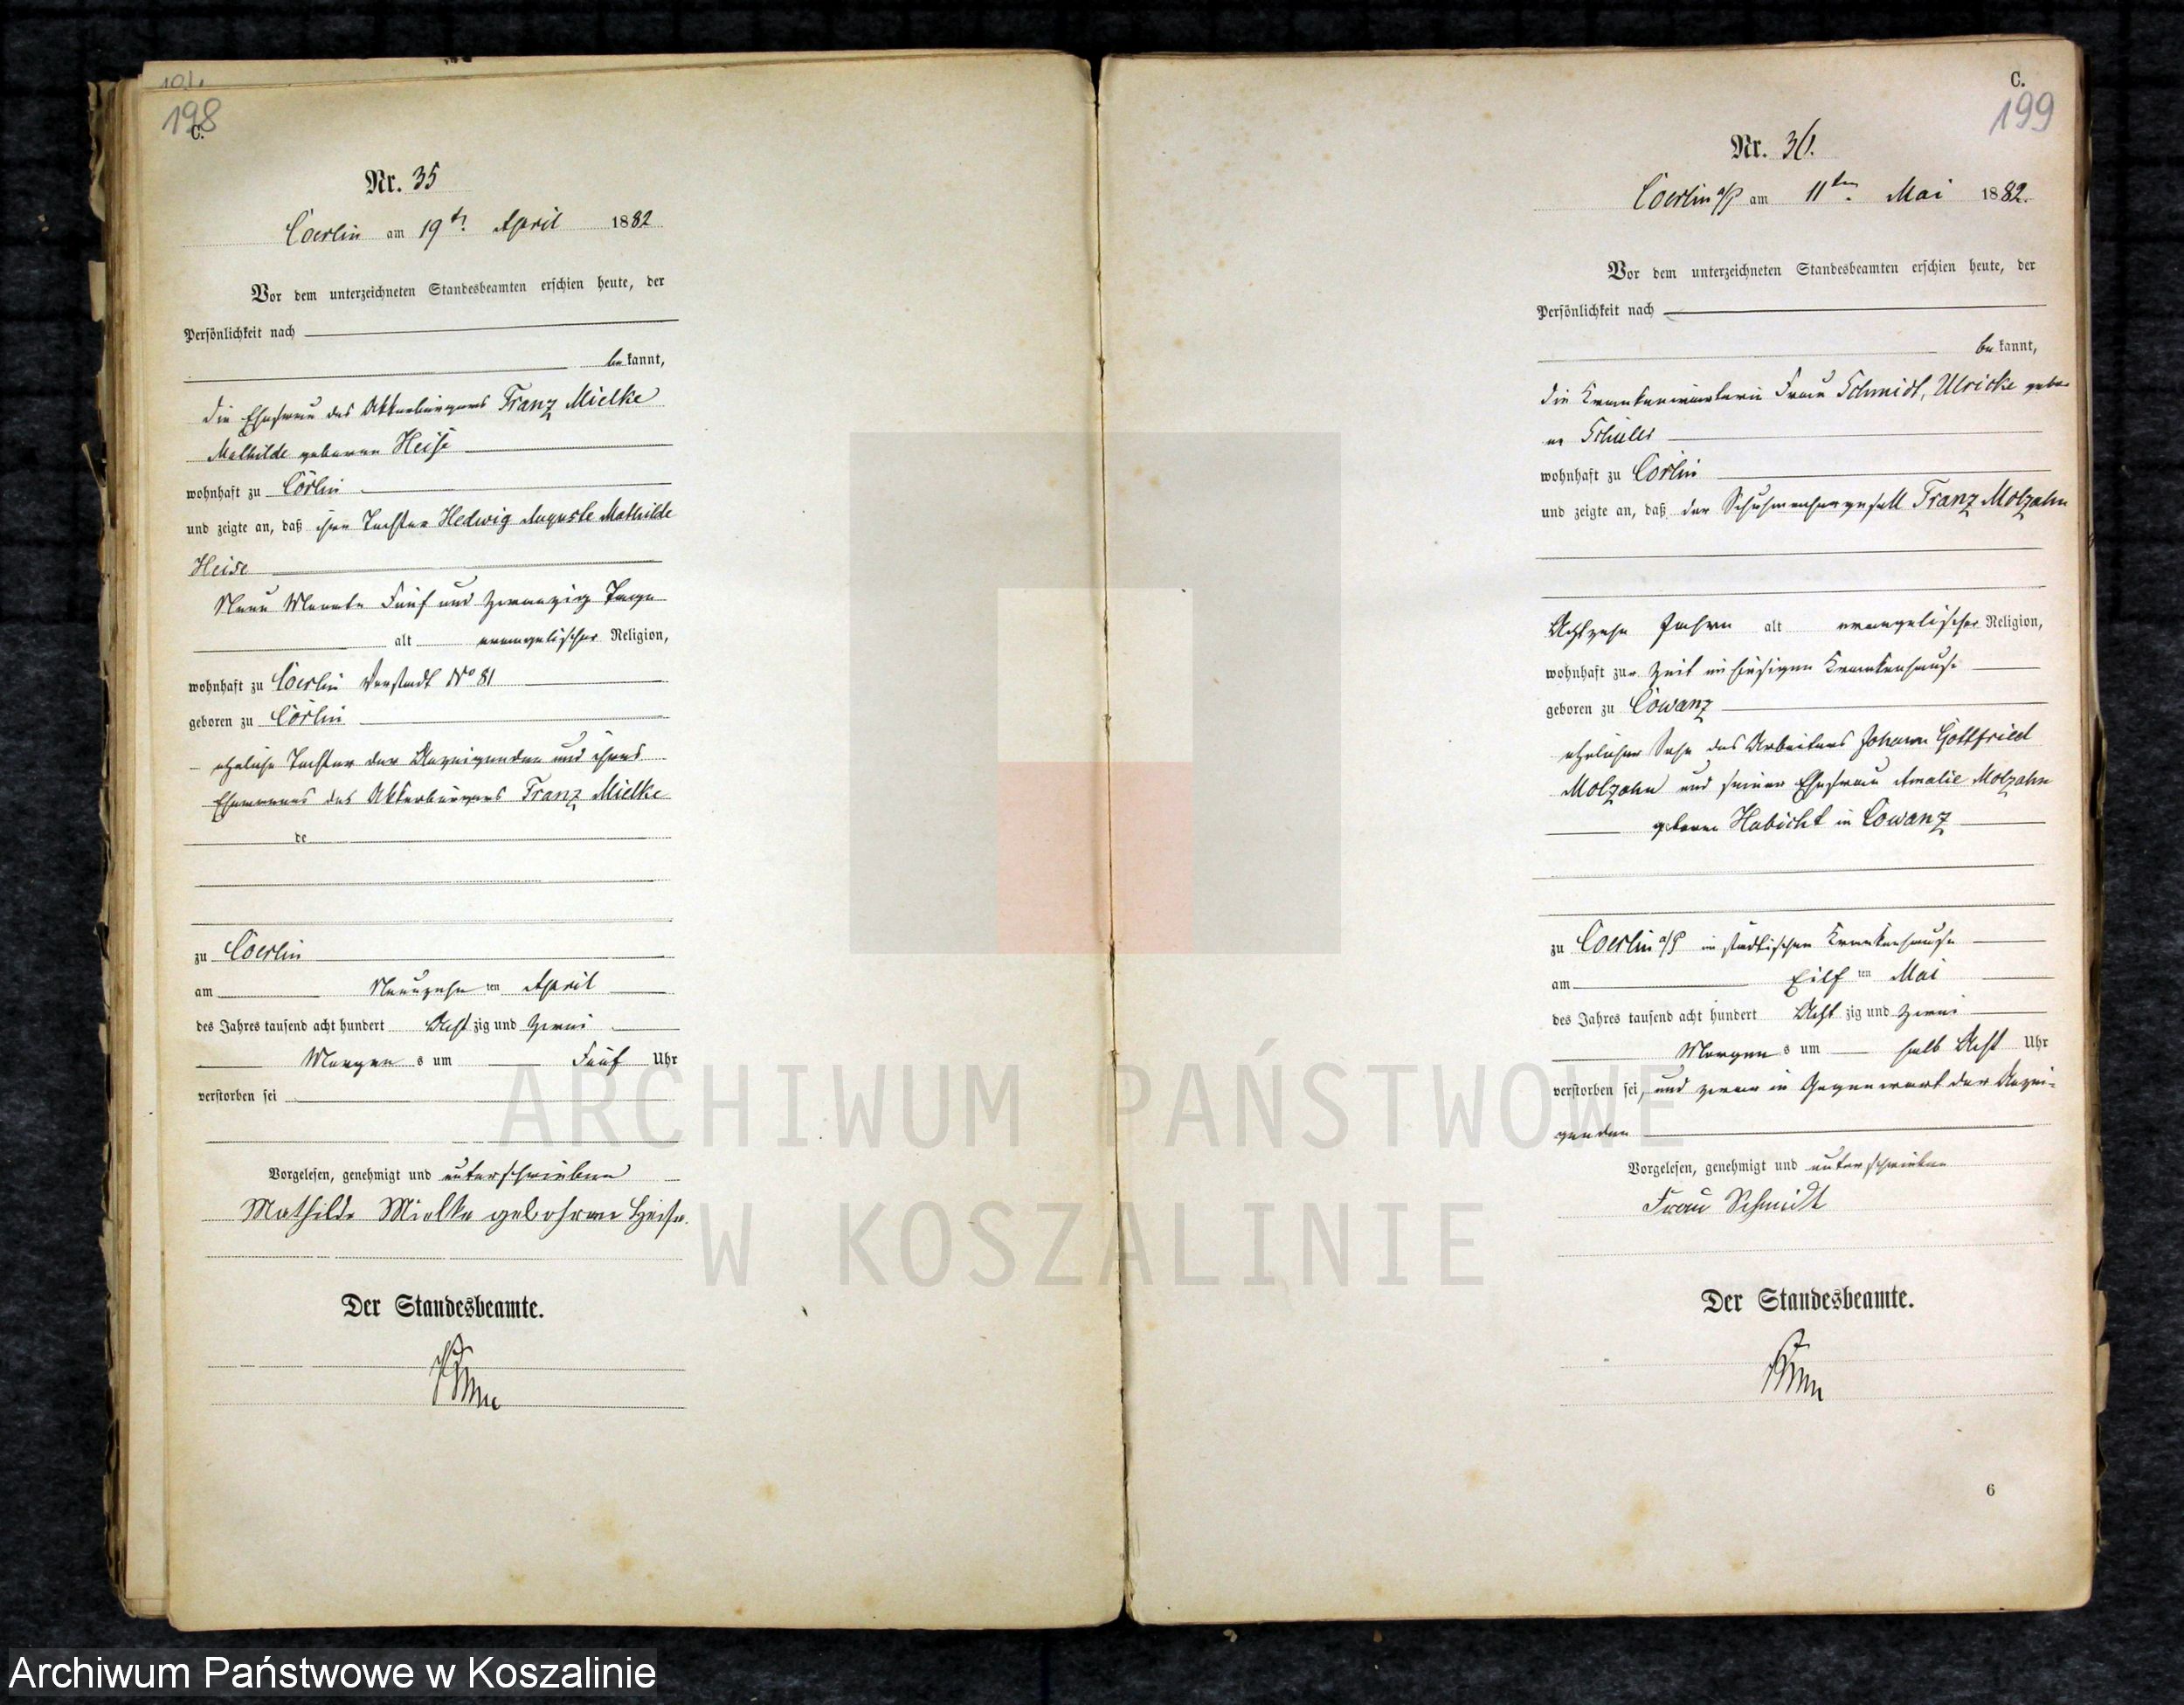 104
198
C.
Nr. 35
Coerlin am 19ten April 1882
Vor dem unterzeichneten Standesbeamten erschien heute, der
Persönlichkeit nach
bekannt,
die Ehefrau des Ackerbürgers Franz Mielke
Mathilde geborene Heise
wohnhaft zu Cörlin
und zeigte an, daß ihre Tochter Hedwig Auguste Mathilde
Heise
Neun Monate Fünf und zwanzig Tage
alt evangelischer Religion,
wohnhaft zu Coerlin Vorstadt No 81
geboren zu Cörlin
eheliche Tochter der Anzeigenden und ihres
Ehemannes des Ackerbürgers Franz Mielke
de
zu Coerlin
am Neunzehnten April
des Jahres tausend acht hundert Achtzig und zwei
Morgens um Fünf Uhr
verstorben sei
Vorgelesen, genehmigt und unterschrieben
Mathilde Mielke gebohrene Heise.
Der Standesbeamte.
C.
199
Nr. 36.
Coerlin a/P am 11ten Mai 1882.
Vor dem unterzeichneten Standesbeamten erschien heute, der
Persönlichkeit nach
bekannt,
die Krankenwärterin Frau Schmidt, Ulricke gebo-
ne
wohnhaft zu Cörlin
und zeigte an, daß der Schuhmachergesell Franz Molzahn
Achtzehn Jahre alt evangelischer Religion,
wohnhaft zur Zeit im hiesigen Krankenhause
geboren zu Cowanz
ehelicher Sohn des Arbeiters Johann Gottfried
Molzahn und seiner Ehefrau Amalie Molzahn
geborene Habicht in Cowanz
zu Coerlin a/P im städtischen Krankenhause
am Eilften Mai
des Jahres tausend acht hundert Achtzig und zwei
Morgens um halb Acht Uhr
verstorben sei, und zwar in Gegenwart der Anzei-
genden
Vorgelesen, genehmigt und unterschrieben
Frau Schmidt
Der Standesbeamte.
6
ARCHIWUM PAŃSTWOWE
W KOSZALINIE
Archiwum Państwowe w Koszalinie